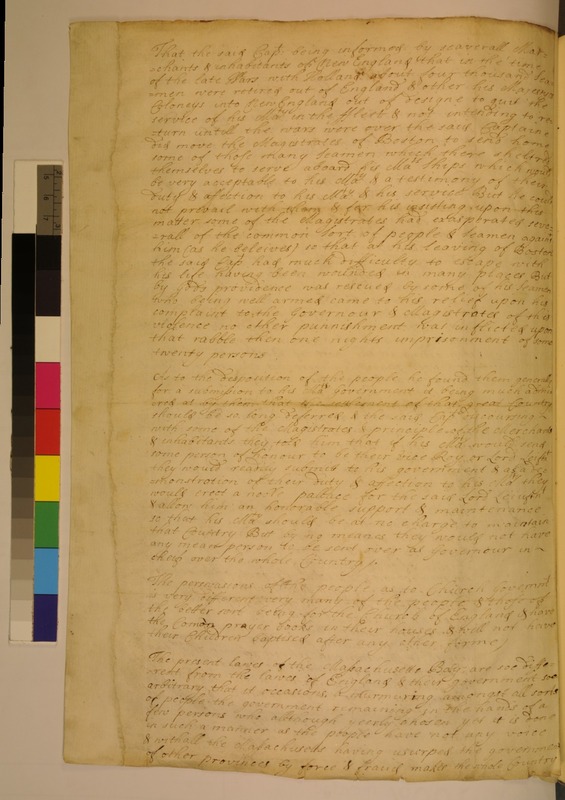 That the said Capt being informed by seaverall Mar
chants & inhabetants of New England that in the time
of the late Wars with Holland about four thousand Sea
men were retired out of England & other his Majesties
Coloneys into New England out of designe to quit the
service of his Matie in the fflett & not entending to re
turn untill the wars were over the said Captaine
did move the Magistrates of Boston to send home
some of those many seamen which there sheltred
themselves to serve aboard his Maties ships which would
be very acceptable to his Matie & a testimony of their
duty & afection to his Matie & his service But he could
not prevail with them & for his insisting upon this
mater some of the Magistrates had exasprated seve
rall of the common sort of people & seamen against
him (as he beleives) so that at his leaving of Boston
the said Capt had much difficulty to escape with
his life having been wounded in many places But
by gods providence was rescued by some of his seamen
who being well armed came to his relief upon his
complaint to the Governour & Magistrates of this
violence no other punnishment was inflicted upon
that rabble then one nights imprisonment of some
twenty persons
As to the disposition of the people he found them generally
for a submision to his Maties government it being much admi
red at by them that the setlement of that great Country
should be so long deferred & the said Capt
with some of the Magistrates & principle of the Merchants
& inhabetants they told him that if his Matie would send
some person of Honour to be their vice Roy or Lord Leift
they would readily submit to his government & as a
monstration of their duty & affection to his Matie they
would erect a noble pallace for the said Lord Leivt
& allow him an honorable support & maintenance
so that his Matie should be at no charge to maintain
that Country But by no means they would not have
any mean person to be sent over as governour in
cheif over the whole Country
The perswasions of the people as to Church goverment
is very different very many of the people & those of
the better sort being for the Church of England & have
the Comon prayer books in their houses & will not have
their Children baptised after any other forme
The present lawes of the Massachusets Bay are soe diffe
rent from the lawes of England & their government soe
arbitrary that it occasions a murmuring amongst all sorts
of people the government remaining in the hands of a
few persons who although yeerly chosen yet it is done
in such a manner as the people have not any voice
& withall the Massachusets having usurped the goverment
of other provinces by force & fraud makes the whole Country